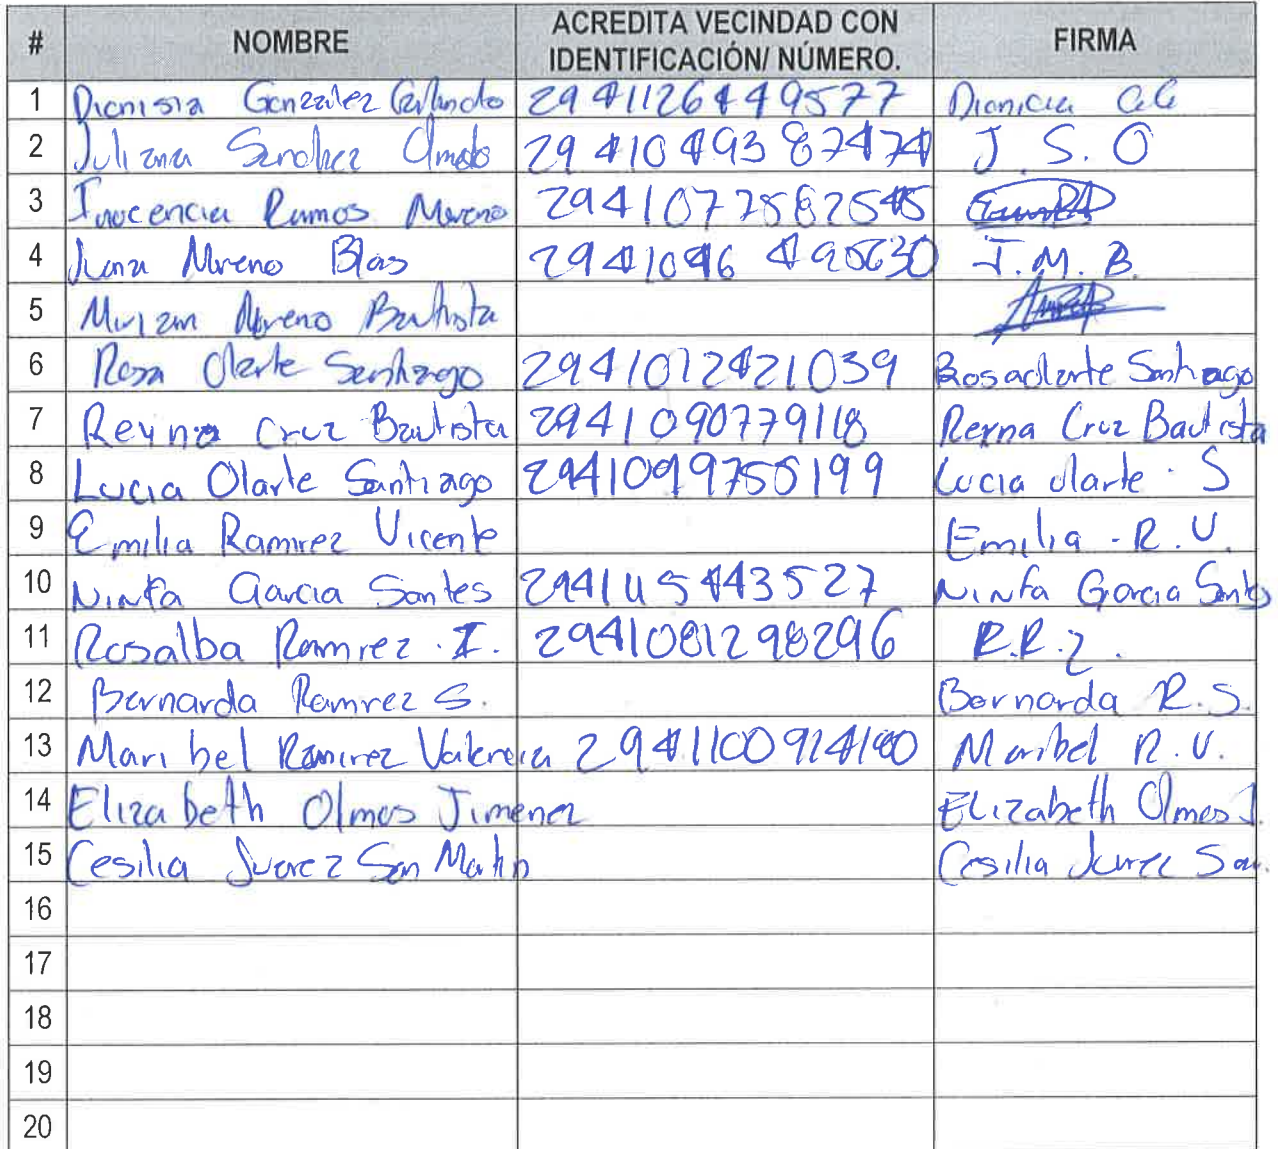 # NOMBRE ACREDITA VECINDAD CON IDENTIFICACIÓN/ NÚMERO. FIRMA
1 Dionisia Gonzalez Galindo 2941126449577 Dionicia G.G
2 Juliana Sanchez Olmedo 2941049387474 J S. O
3 Inocencia Ramos Moreno 2941077582545
4 Juana Moreno Blas 2941046490630 J. M. B.
5 Miriam Moreno Bautista
6 Rosa Olarte Santiago 2941012421039 Rosa olarte Santiago
7 Reyna Cruz Bautista 2941090779118 Reyna Cruz Bautista
8 Lucia Olarte Santiago 2941099755199 Lucia olarte . S
9 Emilia Ramirez Vicente Emilia . R. V.
10 Ninfa Garcia Santes 2941154443527 Ninfa Garcia Santes
11 Rosalba Ramirez . I. 2941081298296 R.R.
12 Bernarda Ramirez S. Bernarda R. S.
13 Maribel Ramirez Valencia 2941100924180 Maribel R. V.
14 Elizabeth Olmos Jimenez Elizabeth Olmos J.
15 Cesilia Juarez San Martin Cesilia Juarez San.
16
17
18
19
20